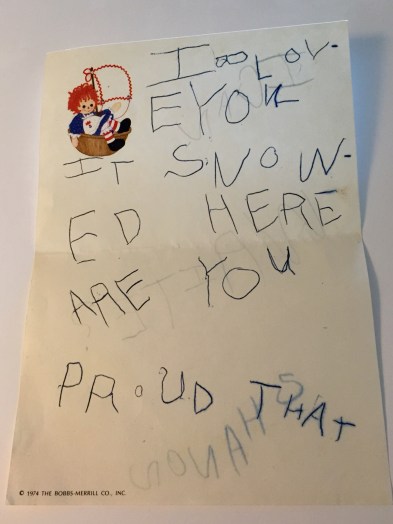 I LOV-
E YOU
IT SNOW-
ED HERE
ARE YOU
PROUD THAT
© 1974 THE BOBBS-MERRILL CO., INC.